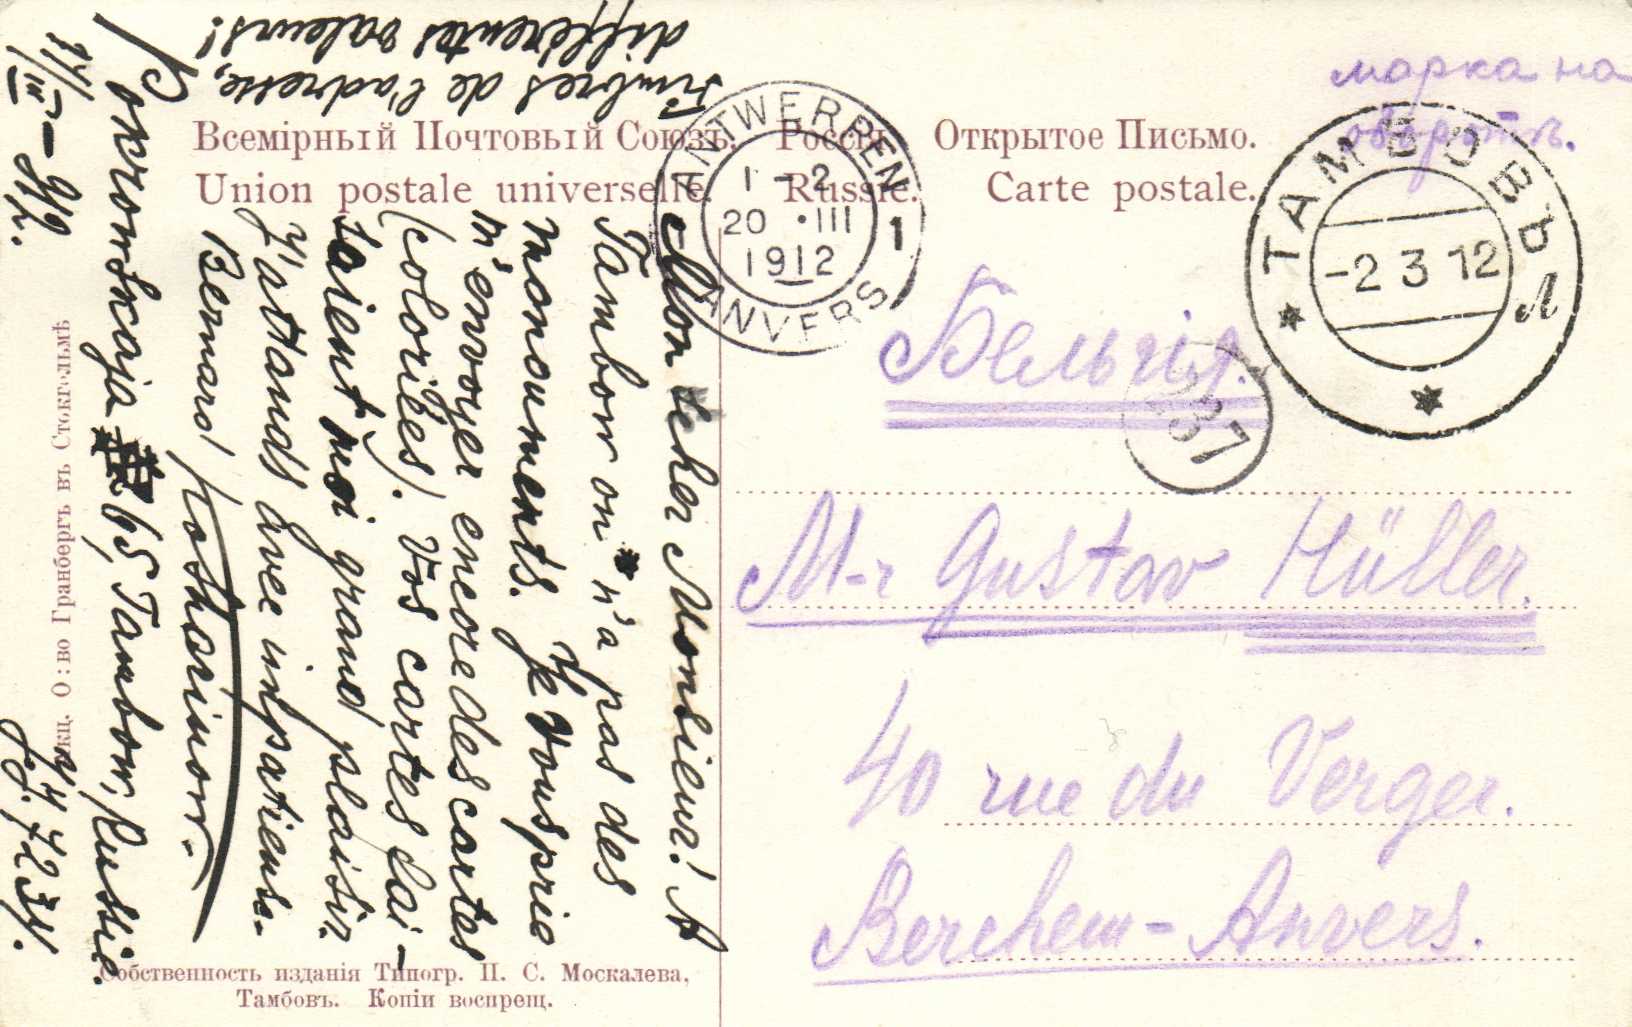 марка на
оборотѣ.
Всемірный Почтовый Союзъ. Россія. Открытое Письмо.
Union postale universelle. Russie. Carte postale.
ANTWERPEN
1 - 2
20 • III
1912
1
ANVERS
ТАМБОВЪ
-2 3 12
Л
237
Бельгія.
M-r Gustav Müller.
40 rue du Verger.
Berchem-Anvers.
Mon scher Monsieur! A
Tambov on n'a pas des
monouments. Je vous prie
m'envoyer encore des cartes
(coloriées). Vos cartes sai-
saient moi grand plaisir.
J'attands avec inpatiense.
Bernard Kosharinow.
Pokrowskaja 65, Tambow, Russie.
14/III-912.
J. J. 7231.
Timbres de l'adresse,
différentes valeurs!
Акц. О:во Гранбергъ въ Стокгольмѣ
Собственность изданія Типогр. П. С. Москалева,
Тамбовъ. Копіи воспрещ.